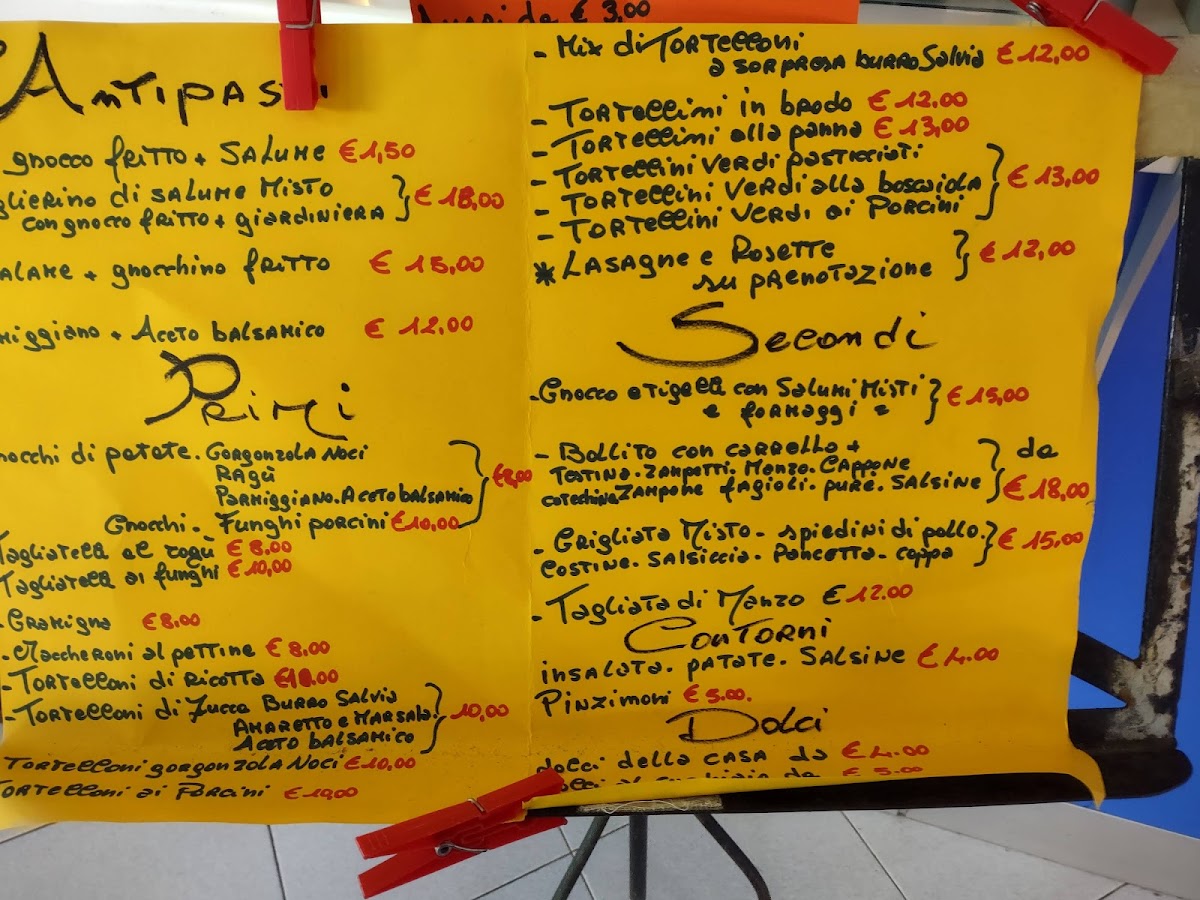 € 3,00
Antipasti
gnocco fritto + SALUME €1,50
glierino di SALUME MISTO
con gnocco fritto + giardiniera } € 18,00
ALAME + gnocchino fritto € 15,00
miggiano + Aceto balsamico € 12,00
Primi
nocchi di patate. Gorgonzola Noci
RAGÙ
Parmiggiano. Aceto balsamico } €8,00
Gnocchi - Funghi porcini €10,00
Tagliatell al ragù € 8,00
Tagliatell ai funghi € 10,00
- Gramigna €8,00
- Maccheroni al pettine € 8,00
- Tortelloni di Ricotta
- Tortelloni di Zucca Burro Salvia
AMARETTO e MARSALA.
Aceto balsamico } 10,00
Tortelloni gorgonzola Noci € 10,00
Tortelloni ai Porcini
- Mix di Tortelloni
a SORPRESA burro Salvia € 12,00
- Tortellini in brodo € 12,00
- Tortellini alla panna € 13,00
- Tortellini Verdi pasticciati
- Tortellini Verdi alla boscaiola } € 13,00
- Tortellini Verdi ai Porcini
* Lasagne e Rosette
su prenotazione } € 12,00
Secondi
- Gnocco e tigell con Salumi Misti
e formaggi = } € 15,00
- Bollito con carrello + da
Testina. Zampetti. Manzo. Cappone
cotechino Zampone fagioli. purè. SALSINE } € 18,00
- Grigliata Misto - spiedini di pollo.
Costine. Salsiccia. Pancetta - coppa } € 15,00
- Tagliata di Manzo € 12.00
Contorni
insalata. patate. SALSINE € 4.00
Pinzimoni € 5.00.
Dolci
dolci della CASA da € 4.00
da € 5.00